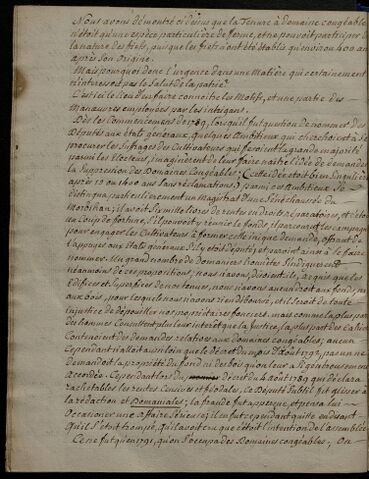 Nous avons démontré ci dessus que la Tenure à domaine congéable
n'étoit qu'une espèce particuliere de ferme, et ne pouvoit participer de
la nature des fiefs, puisque les fiefs n'ont été établis qu'environ 400 ans
après son origine.
Mais pourquoi donc l'urgence dans une Matière qui certainement
n'interessoit pas le Salut de la patrie?
C'est ici le lieu de faire connoitre les Motifs, et une partie des
Manœuvres employées par les intrigans.
Dès le Commencement de 1789, lorsqu'il fut question de nommer des
Députés aux états généraux, quelques Ambitieux qui cherchoient à se
procurer les Suffrages des Cultivateurs qui faisoient la grande majorité
parmi les Electeurs, imaginèrent de leur faire naitre l'idée de demander
la Suppression des Domaines Congéables; (Cette idée étoit bien Singulière
après 10 ou 1200 ans Sans réclamations) parmi ces ambitieux Se
distingua particulierement un Magistrat d'une Sénéchaussée du
Morbihan; il avoit Six mille livres de rentes en droits réparatoires, et c'étoit
un Coup de fortune, S'il pouvoit y réunir le fonds, il parcourut les campagnes
pour engager les Cultivateurs à former cette inique demande, offrant de
l'appuyer aux états généraux S'il y étoit député, et parvint ainsi à Se faire
nommer. Un grand nombre de domaniers honnêtes S'indignèrent
néanmoins de ces propositions; nous n'avons, disoient-ils, acquis que les
édifices et Superfices de nos tenues, nous n'avons aucun droit au fonds, ni
aux bois, pour lesquels nous n'avons rien déboursé, et il Seroit de toute
injustice de dépouiller nos propriétaires fonciers. mais comme la plus part
des hommes Consultent plus leur intérêt que la Justice, la plus part des Cahiers
Contenoient des demandes relatives aux domaines congéables; aucun
Cependant n'alloit aussi loin que le décret du 27 Août 1792, pas un ne
demandoit la propriété du fond ni des bois que on leur a Si généreusement
accordés. Cependant lors du Décret du 4 août 1789 qui déclara
rachetables les rentes Foncières et féodales, le Député Subtil fit glisser à
la rédaction et Domaniales; la fraude fut apperçue, et pensa lui
Occasioner une affaire Sérieuse; il en fut cependant quitte en disant
Qu'il S'étoit trompé, qu'il avoit cru que c'étoit l'intention de l'assemblée.
Ce ne fut qu'en 1791, qu'on S'occupa des Domaines congéables; On